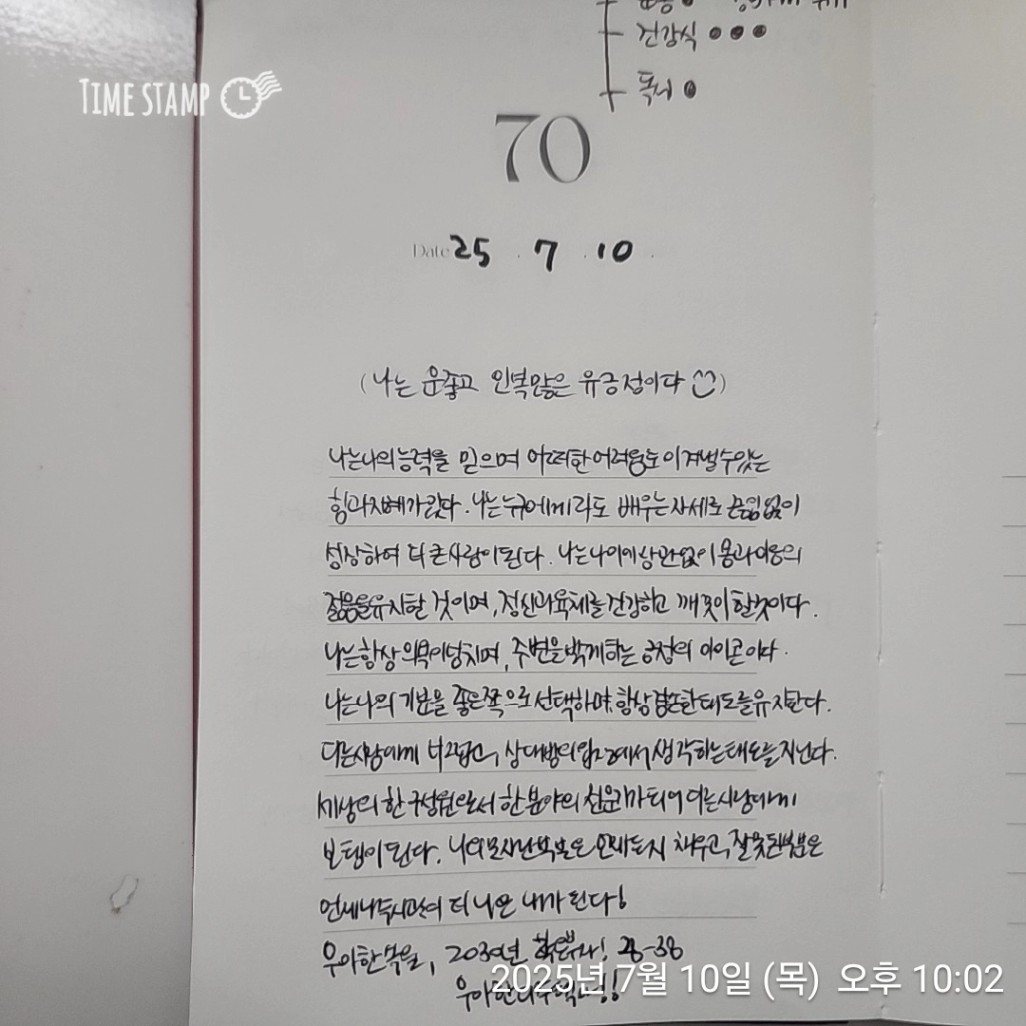 건강식 ● ● ●
독서 ●
TIME STAMP
70
Date 25 . 7 . 10 .
(나는 운좋고 인복많은 유긍정이다)
나는 나의 능력을 믿으며 어떠한 어려움도 이겨낼 수 있는
힘과 지혜가 있다. 나는 누구에게라도 배우는 자세로 끊임없이
성장하여 더 큰 사람이 된다. 나는 나이에 상관없이 몸과 마음의
젊음을 유지할 것이며, 정신과 육체를 건강하고 깨끗이 할 것이다.
나는 항상 의욕이 넘치며, 주변을 밝게 하는 긍정의 아이콘이다.
나는 나의 기분을 좋은쪽으로 선택하며, 항상 겸손한 태도를 유지한다.
다른 사람에게 너그럽고, 상대방의 입장에서 생각하는 태도를 지닌다.
세상의 한 구성원으로서 한 분야의 전문가가 되어 다른 사람에게
보탬이 된다. 나의 모자란 부분은 언제든지 채우고, 잘못된 부분은
언제나 더 나은 내가 된다!
우아한 2030년 28-38
우아한
2025년 7월 10일 (목) 오후 10:02